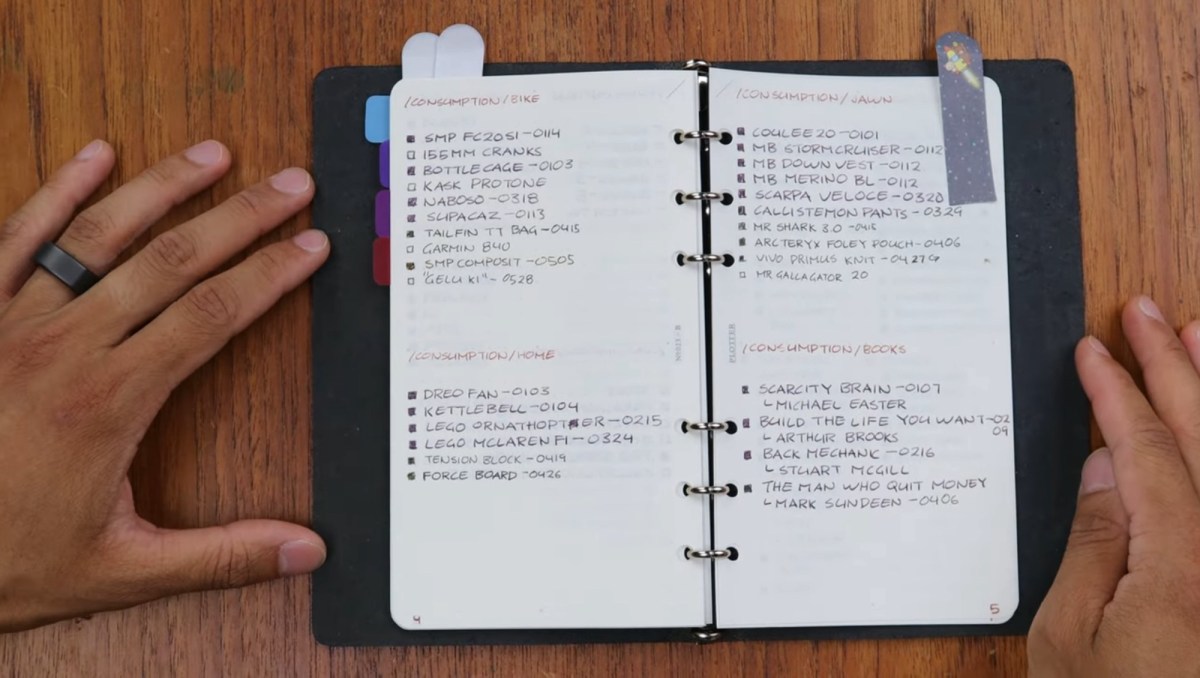 /CONSUMPTION/BIKE
SMP FC20S1-0114
155MM CRANKS
BOTTLE CAGE-0103
KASK PROTONE
NABOSO-0318
SUPACAZ-0113
TAILFIN TT BAG-0415
GARMIN 840
SMP COMPOSIT-0505
"GELU K1"-0528
/CONSUMPTION/HOME
DREO FAN-0103
KETTLEBELL-0104
LEGO ORNATHOPTER-0215
LEGO MCLAREN F1-0324
TENSION BLOCK-0419
FORCE BOARD-0426
4
/CONSUMPTION/JAWN
COULEE 20-0101
MB STORMCRUISER-0112
MB DOWN VEST-0112
MB MERINO BL-0112
SCARPA VELOCE-0320
CALLISTEMON PANTS-0329
MR SHARK 3.0-0415
ARCTERYX FOLEY POUCH-0406
VIVO PRIMUS KNIT-0427
MR GALLAGATOR 20
PLOTTER
/CONSUMPTION/BOOKS
SCARCITY BRAIN-0107
MICHAEL EASTER
BUILD THE LIFE YOU WANT-02
09
ARTHUR BROOKS
BACK MECHANIC-0216
STUART MCGILL
THE MAN WHO QUIT MONEY
MARK SUNDEEN-0406
5